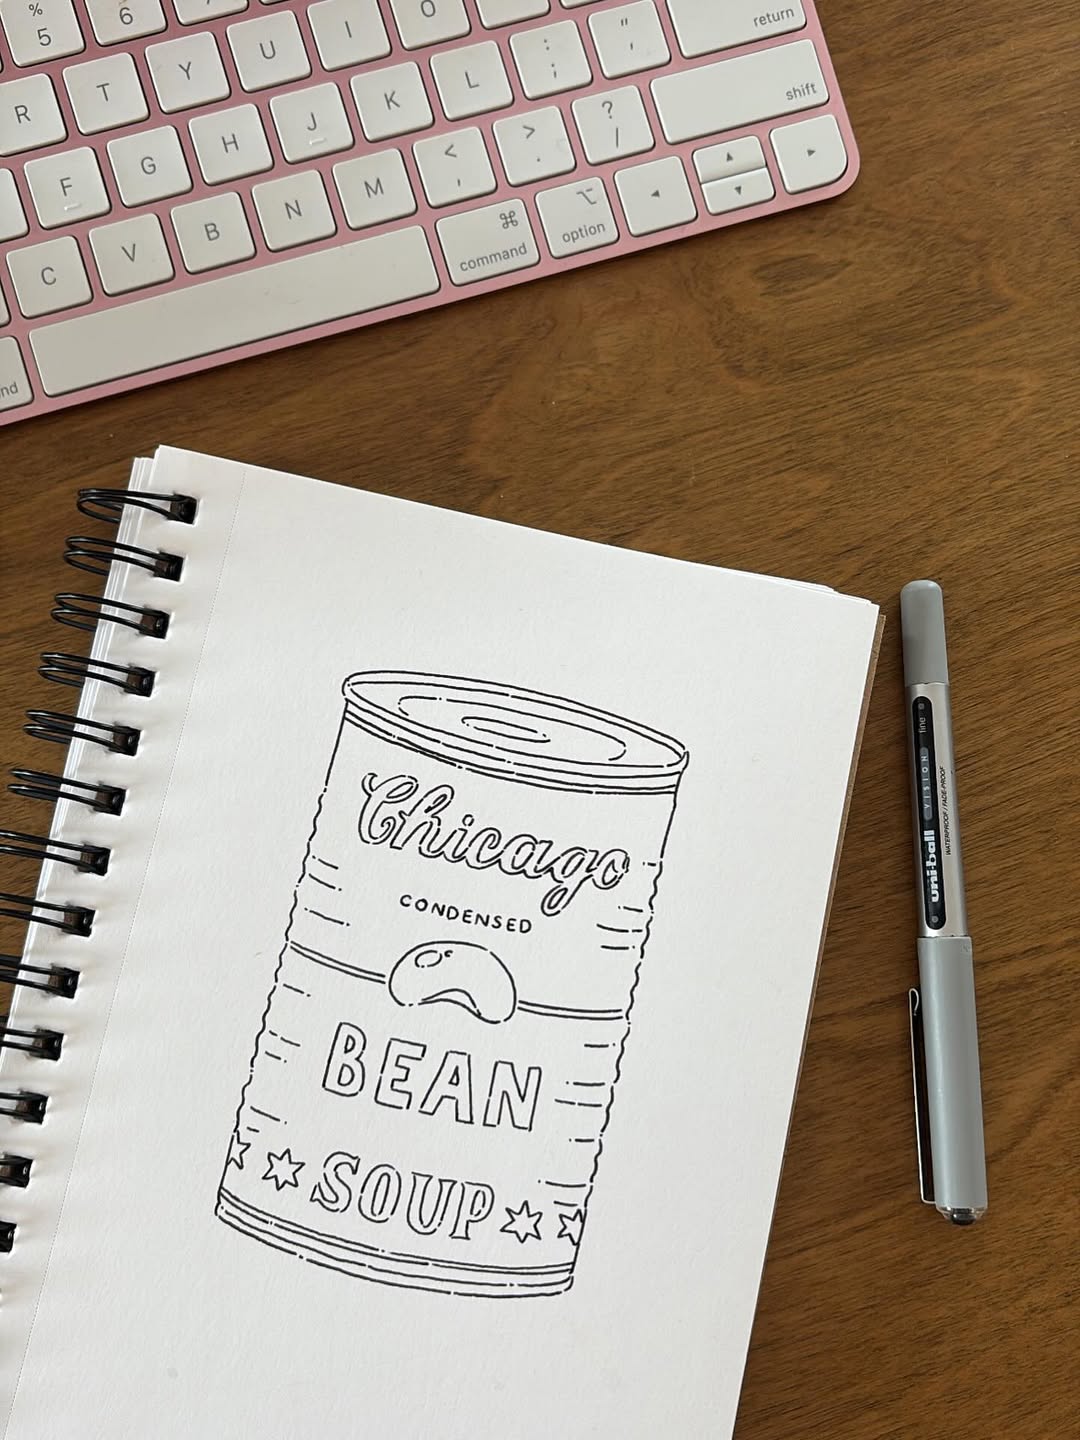 %
5
6
T Y U I O
return
R
F G H J K L : ; " '
shift
C V B N M < , > . ? /
command
option
nd
Chicago
CONDENSED
BEAN
SOUP
uni-ball VISION fine
WATERPROOF / FADE-PROOF